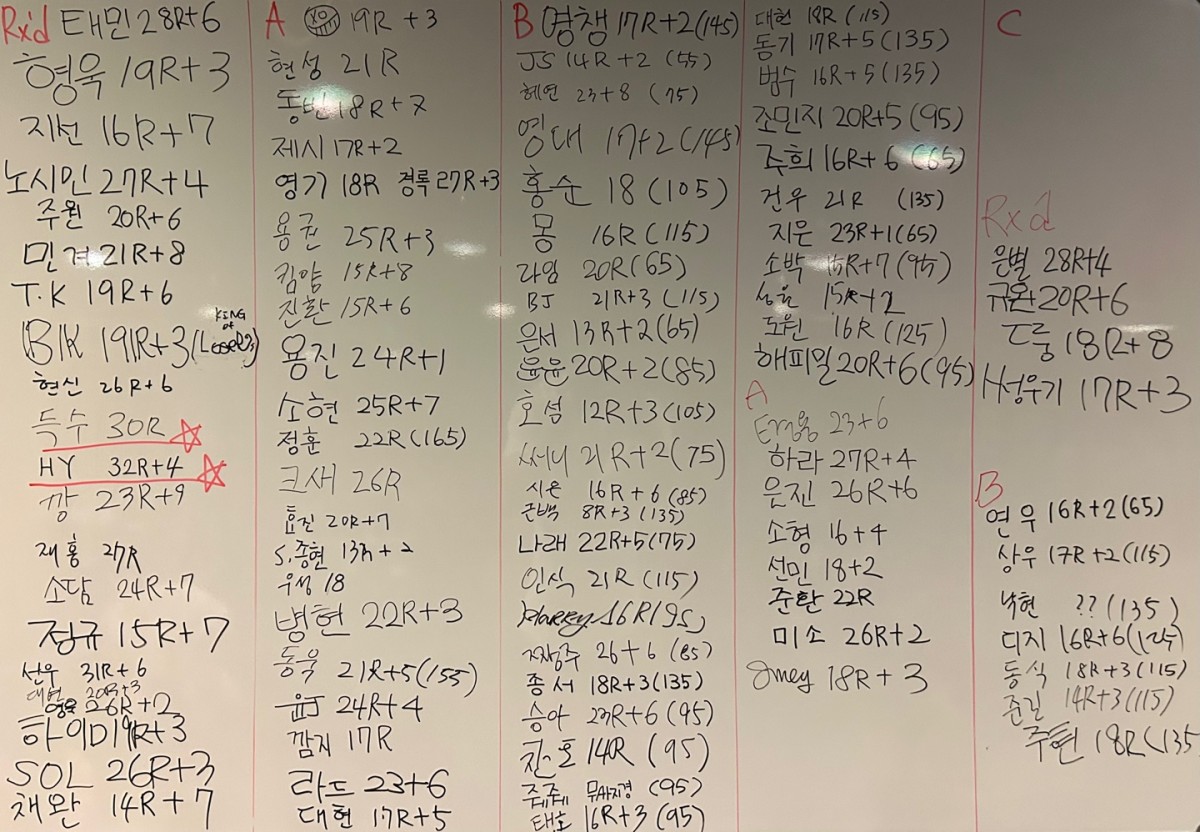 Rx'd 태민 28R+6
형욱 19R+3
지선 16R+7
노시민 27R+4
주원 20R+6
민겨 21R+8
T.K 19R+6
BK 19R+3 (KING of Loser)
현신 26R+6
득수 30R
HY 32R+4
깡 23R+9
재홍 27R
소담 24R+7
정규 15R+7
선우 31R+6
대현 20R+3
26R+12
하이D 19R+3
SOL 26R+3
채완 14R+7
A 19R+3
현성 21R
동빈 18R+7
제시 17R+2
영기 18R 경록 27R+3
용권 25R+3
킴양 15R+8
진환 15R+6
용진 24R+1
소현 25R+7
정훈 22R(165)
크새 26R
효진 20R+7
S.종현 13R+2
우성 18
병현 22R+3
동욱 21R+5(155)
윤J 24R+4
깜지 17R
라드 23+6
대현 17R+5
B 영챙 17R+2(145)
JS 14R+2 (55)
혜연 23+8 (75)
영대 17+2(145)
홍순 18 (105)
몽 16R(115)
라임 20R(65)
BJ 21R+3 (115)
은서 13R+2(65)
윤윤 20R+2(85)
호섬 12R+3(105)
써니 21R+2(75)
시온 16R+6(85)
근백 8R+3(135)
나래 22R+5(75)
인식 21R(115)
Harry 16R(95)
짜장주 26+6 (85)
종서 18R+3(135)
승아 23R+6(95)
찬호 14R (95)
쥬쥬 (95)
태호 16R+3(95)
대현 18R (115)
동기 17R+5(135)
범수 16R+5(135)
조민지 20R+5(95)
주희 16R+6(65)
건우 21R (135)
지은 23R+1(65)
소박 15R+7(95)
성율 15R+2
도원 16R(125)
해피밀 20R+6(95)
A
23+6
하라 27R+4
은진 26R+6
소형 16+4
선민 18+2
준환 22R
미소 26R+2
Jmey 18R+3
C
Rx'd
은별 28R+4
규완 20R+6
드룽 18R+8
서성우기 17R+3
B
연우 16R+2(65)
상우 17R+2(115)
낙현 ??(135)
디지 16R+6(125)
동식 18R+3(115)
준길 14R+3(115)
주현 18R(135